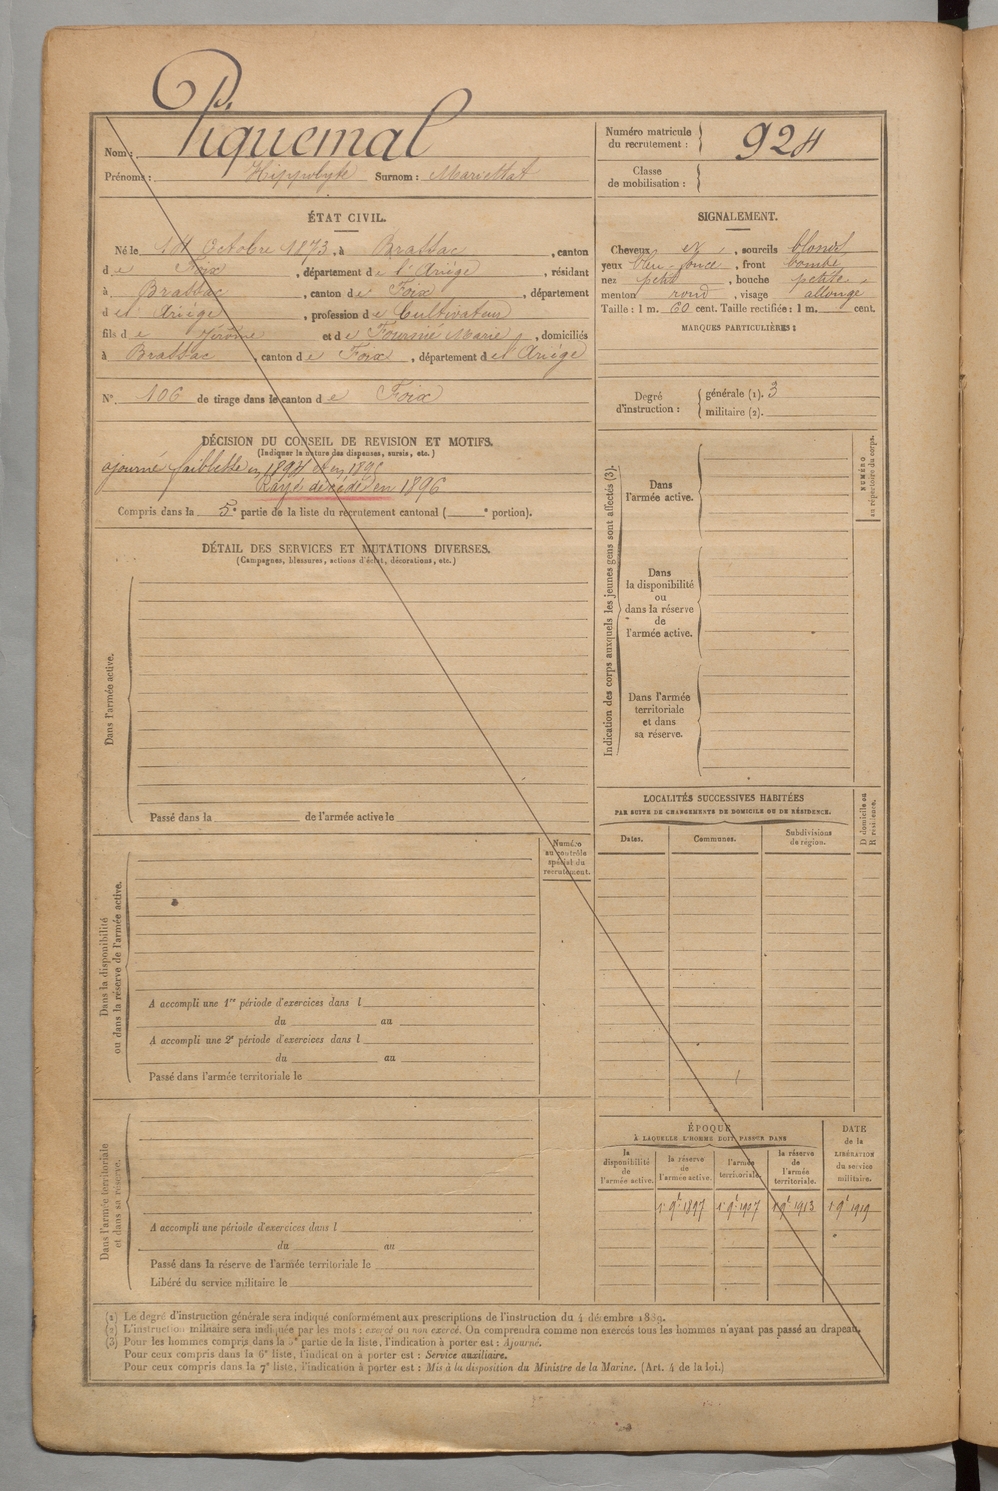 Piquemal
Nom :
Prénoms : Hippolyte Surnom : Mariettat
Numéro matricule du recrutement : 924
Classe de mobilisation :
ÉTAT CIVIL.
Né le Octobre 1873, à Brassac, canton
de Foix, département de l'Ariège, résidant
à Brassac, canton de Foix, département
de l'Ariège, profession de Cultivateur
fils de Jérôme et de Fournié Marie, domiciliés
à Brassac, canton de Foix, département de l'Ariège
N° 106 de tirage dans le canton de Foix
SIGNALEMENT.
Cheveux et, sourcils blonds
yeux bleu foncé, front bombé
nez petit, bouche petite
menton rond, visage allongé
Taille : 1 m. 60 cent. Taille rectifiée : 1 m. cent.
MARQUES PARTICULIÈRES :
Degré d'instruction :
générale (1). 3
militaire (2).
DÉCISION DU CONSEIL DE REVISION ET MOTIFS.
(Indiquer la nature des dispenses, sursis, etc.)
ajourné faiblesse en 1894 et en 1895
Rayé décédé en 1896
Compris dans la 5e partie de la liste du recrutement cantonal ( e portion).
DÉTAIL DES SERVICES ET MUTATIONS DIVERSES.
(Campagnes, blessures, actions d'éclat, décorations, etc.)
Dans l'armée active.
Passé dans la de l'armée active le
Numéro
au contrôle
spécial du
recrutement.
Dans la disponibilité
ou dans la réserve de l'armée active.
A accompli une 1re période d'exercices dans l
du au
A accompli une 2e période d'exercices dans l
du au
Passé dans l'armée territoriale le
Dans l'armée territoriale
et dans sa réserve.
A accompli une période d'exercices dans l
du au
Passé dans la réserve de l'armée territoriale le
Libéré du service militaire le
Indication des corps auxquels les jeunes gens sont affectés (3).
Dans
l'armée active.
Dans
la disponibilité
ou
dans la réserve
de
l'armée active.
Dans l'armée
territoriale
et dans
sa réserve.
NUMÉRO
au répertoire du corps.
LOCALITÉS SUCCESSIVES HABITÉES
PAR SUITE DE CHANGEMENTS DE DOMICILE OU DE RÉSIDENCE.
D domicile ou
R résidence.
Dates. Communes. Subdivisions de région.
ÉPOQUE
À LAQUELLE L'HOMME DOIT PASSER DANS
DATE
de la
LIBÉRATION
du service
militaire.
la disponibilité de l'armée active.
la réserve de l'armée active.
l'armée territoriale.
la réserve de l'armée territoriale.
1er 9bre 1897 1er 9bre 1907 1er 9bre 1913 1er 9bre 1919
(1) Le degré d'instruction générale sera indiqué conformément aux prescriptions de l'instruction du 4 décembre 1889.
(2) L'instruction militaire sera indiquée par les mots : exercé ou non exercé. On comprendra comme non exercés tous les hommes n'ayant pas passé au drapeau.
(3) Pour les hommes compris dans la 5e partie de la liste, l'indication à porter est : Ajourné.
Pour ceux compris dans la 6e liste, l'indication à porter est : Service auxiliaire.
Pour ceux compris dans la 7e liste, l'indication à porter est : Mis à la disposition du Ministre de la Marine. (Art. 4 de la loi.)